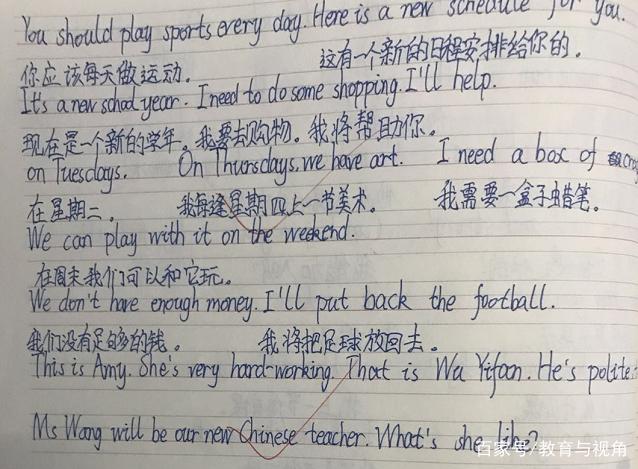 You should play sports every day. Here is a new schedule for you.
你应该每天做运动。 这有一个新的日程安排给你的。
It's a new school year. I need to do some shopping. I'll help.
现在是一个新的学年。我要去购物。我将帮助你。
on Tuesdays. On Thursdays, we have art. I need a box of
在星期二。 我每逢星期四上一节美术。 我需要一盒子蜡笔。
We can play with it on the weekend.
在周末我们可以和它玩。
We don't have enough money. I'll put back the football.
我们没有足够的钱。 我将把足球放回去。
This is Amy. She's very hard-working. That is Wu Yifan. He's polite.
Ms Wang will be our new Chinese teacher. What's she like?
百家号/教育与视角